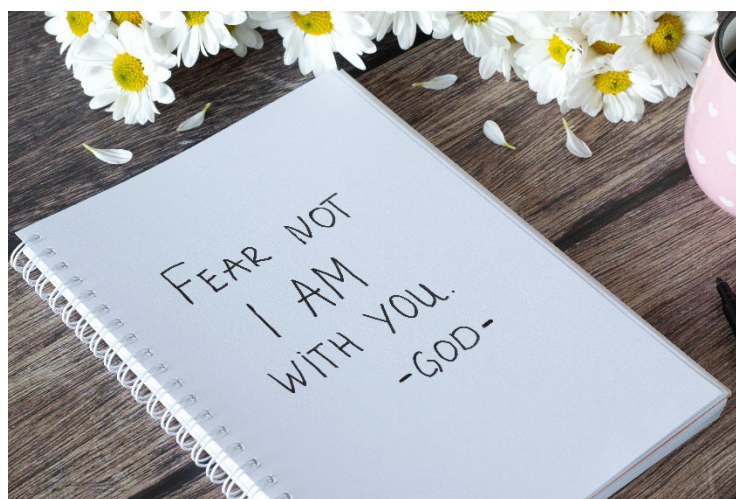 FEAR NOT
I AM
WiTH YOU.
-GOD-